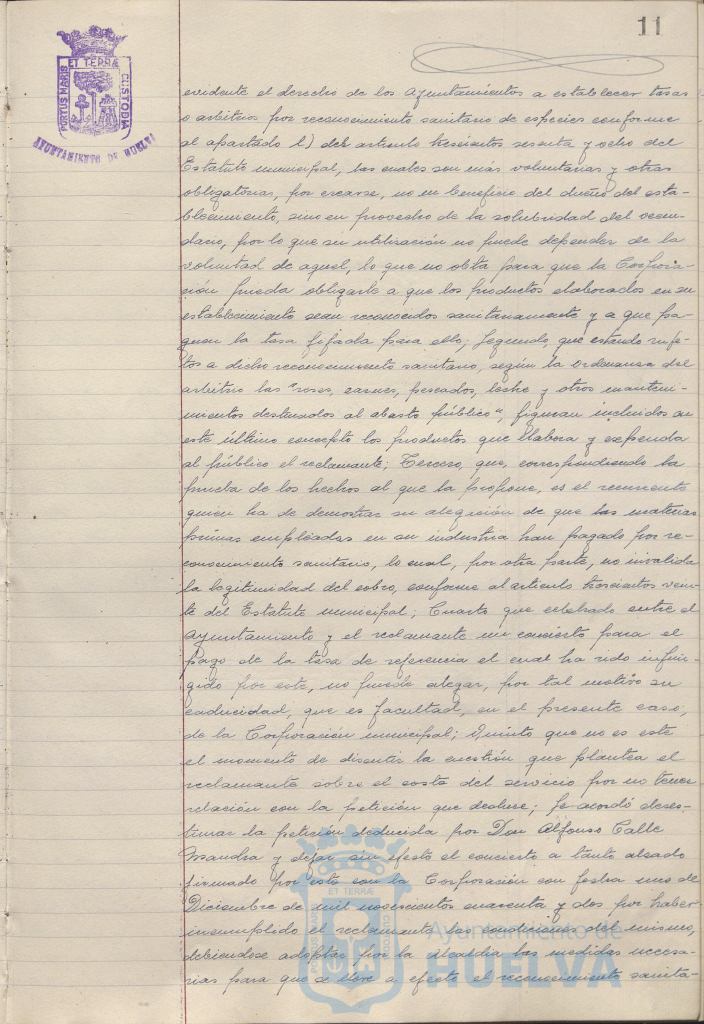 11
PORTUS MARIS ET TERRÆ CUSTODIA
AYUNTAMIENTO DE HUELVA
evidente el derecho de los Ayuntamientos a establecer tasas
o arbitrios por reconocimiento sanitario de especies conforme
al apartado l) del artículo trescientos sesenta y ocho del
Estatuto municipal, las cuales son más voluntarias y otras
obligatorias, por crearse, no en beneficio del dueño del esta-
blecimiento, sino en provecho de la salubridad del vecin-
dario, por lo que su utilización no puede depender de la
voluntad de aquel, lo que no obta para que la Corpora-
ción pueda obligarle a que los productos elaborados en su
establecimiento sean reconocidos sanitariamente y a que pa-
guen la tasa fijada para ello; Segundo, que estando suje-
tos a dicho reconocimiento sanitario, según la ordenanza del
arbitrio las "reses, carnes, pescados, leche y otros manteni-
mientos destinados al abasto público", figuran incluidos en
este último concepto los productos que elabora y expenda
al público el reclamante; Tercero, que, correspondiendo la
prueba de los hechos al que la propone, es el recurrente
quien ha de demostrar su alegación de que las materias
primas empleadas en su industria han pagado por re-
conocimiento sanitario, lo cual, por otra parte, no invalida
la legitimidad del cobro, conforme al artículo trescientos vein-
te del Estatuto municipal; Cuarto que celebrado entre el
Ayuntamiento y el reclamante un concierto para el
pago de la tasa de referencia el cual ha sido infrin-
gido por este, no puede alegar, por tal motivo su
caducidad, que es facultad, en el presente caso,
de la Corporación municipal; Quinto que no es este
el momento de discutir la cuestión que plantea el
reclamante sobre el costo del servicio por no tener
relación con la petición que deduce; Se acordó deses-
timar la petición deducida por Don Alfonso Calle
Mandra y dejar sin efecto el concierto a tanto alzado
firmado por este con la Corporación con fecha uno de
Diciembre de mil novecientos cuarenta y dos por haber
incumplido el reclamante las condiciones del mismo,
debiendose adoptar por la Alcaldia las medidas necesa-
rias para que se lleve a efecto el reconocimiento sanita-
Ayuntamiento de
HUELVA